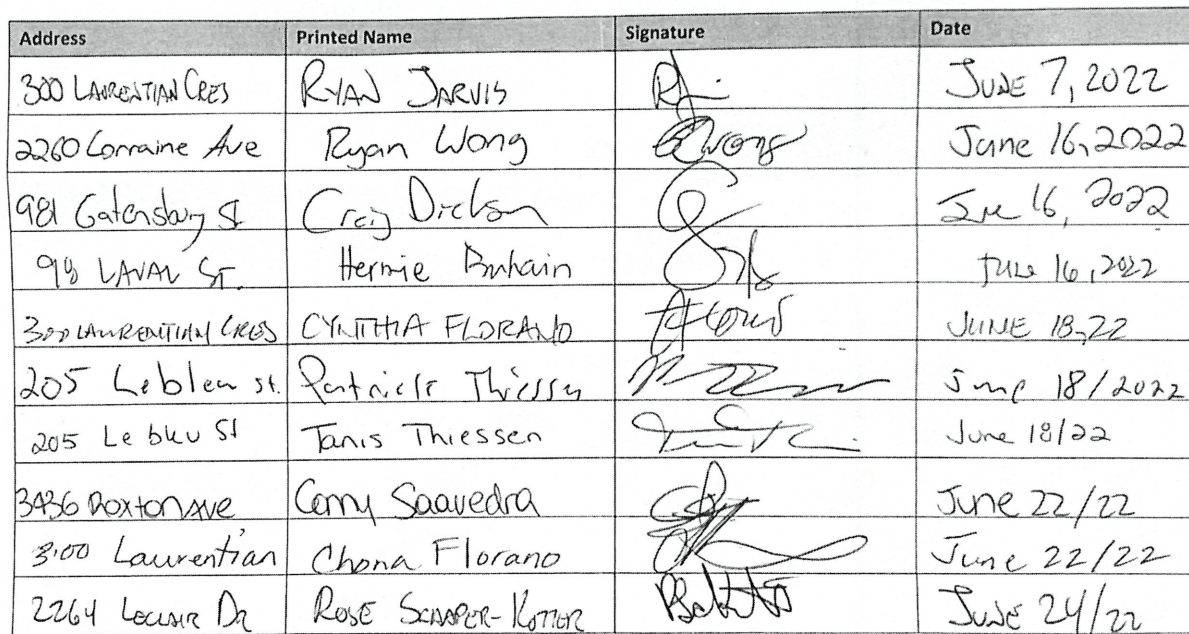 Address Printed Name Signature Date
300 LAURENTIAN CRES RYAN JARVIS JUNE 7, 2022
2260 Lorraine Ave Ryan Wong RWong June 16, 2022
981 Gatensbury St Craig Dickson June 16, 2022
98 LAVAL ST. Hermie Buhain June 16, 2022
300 LAURENTIAN CRES CYNTHIA FLORANO JUNE 18, 22
205 Lebleu st. Patrick Thiessen June 18/2022
205 Lebleu St Tanis Thiessen June 18/22
3436 ROXTON AVE Saavedra June 22/22
300 Laurentian Chona Florano June 22/22
2264 LECLAIR DR ROSE SCHAPER-KOTTER JUNE 24/22